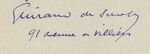 Guirand de Scevola
91 avenue de Villiers